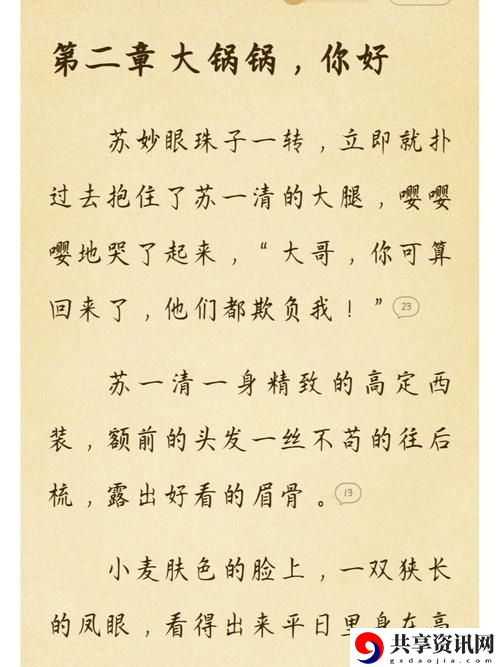 第二章 大锅锅，你好
苏妙眼珠子一转，立即就扑
过去抱住了苏一清的大腿，嘤嘤
嘤地哭了起来，“大哥，你可算
回来了，他们都欺负我！”
23
苏一清一身精致的高定西
装，额前的头发一丝不苟的往后
梳，露出好看的眉骨。
13
小麦肤色的脸上，一双狭长
的凤眼，看得出来平日里身在高
共享资讯网
gxdaojia.com